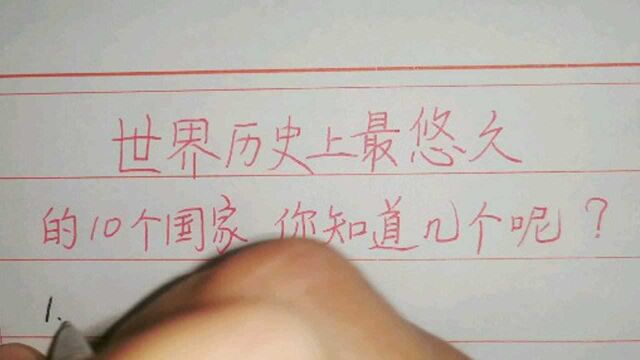 世界历史上最悠久
的10个国家 你知道几个呢？
1.